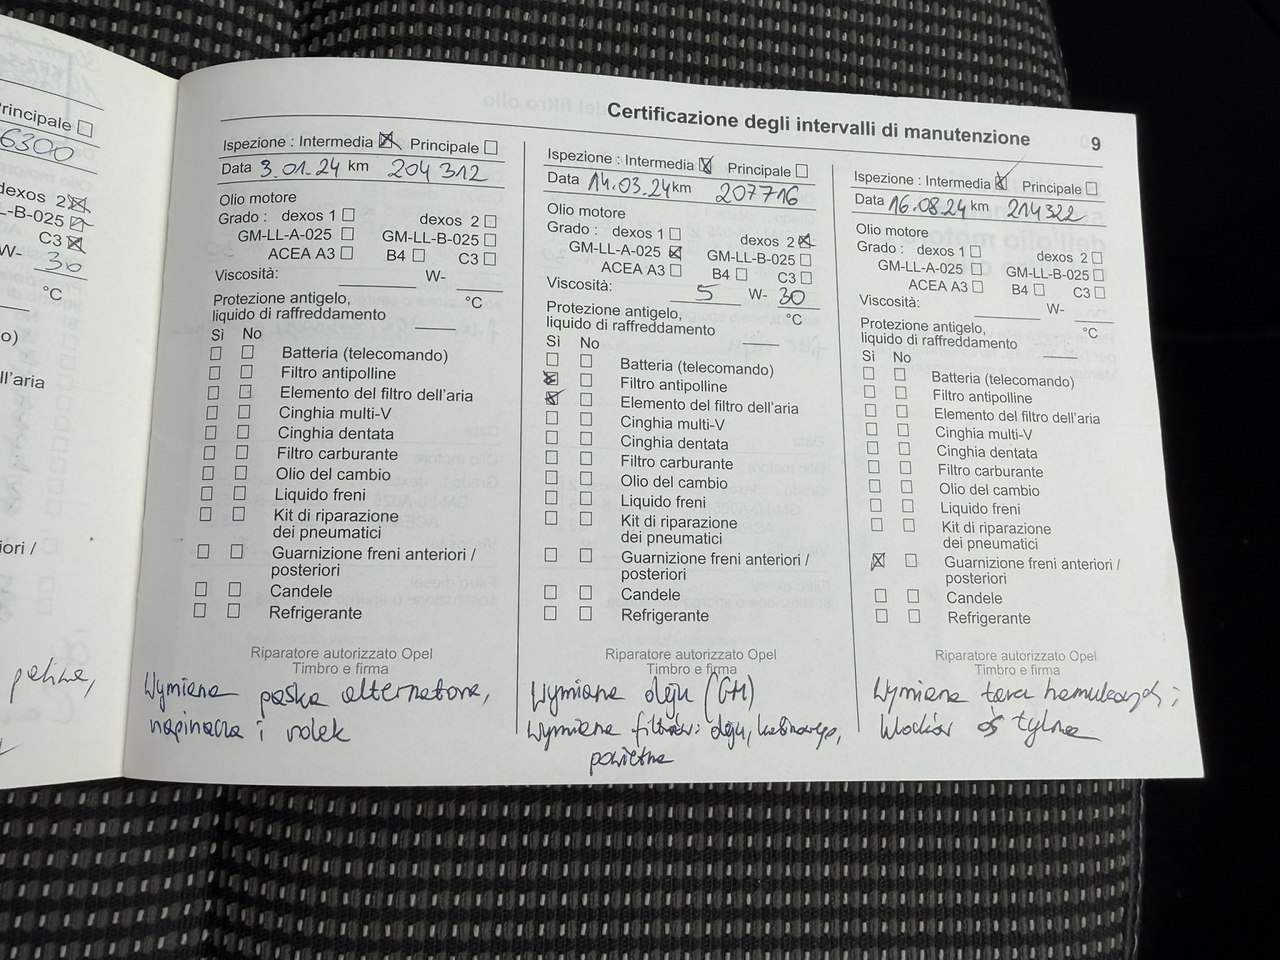 rincipale
6300
dexos 2
L-B-025
C3
W- 30
°C
o)
ll'aria
iori /
Certificazione degli intervalli di manutenzione 9
Ispezione : Intermedia Principale
Data 3.01.24 km 204 312
Olio motore
Grado : dexos 1 dexos 2
GM-LL-A-025 GM-LL-B-025
ACEA A3 B4 C3
Viscosità: W-
Protezione antigelo,
liquido di raffreddamento °C
Sì No
Batteria (telecomando)
Filtro antipolline
Elemento del filtro dell'aria
Cinghia multi-V
Cinghia dentata
Filtro carburante
Olio del cambio
Liquido freni
Kit di riparazione
dei pneumatici
Guarnizione freni anteriori /
posteriori
Candele
Refrigerante
Riparatore autorizzato Opel
Timbro e firma
Wymiana paska alternatora,
napinacza i rolek
Ispezione : Intermedia Principale
Data 14.03.24 km 207716
Olio motore
Grado : dexos 1 dexos 2
GM-LL-A-025 GM-LL-B-025
ACEA A3 B4 C3
Viscosità: 5 W- 30
Protezione antigelo,
liquido di raffreddamento °C
Sì No
Batteria (telecomando)
Filtro antipolline
Elemento del filtro dell'aria
Cinghia multi-V
Cinghia dentata
Filtro carburante
Olio del cambio
Liquido freni
Kit di riparazione
dei pneumatici
Guarnizione freni anteriori /
posteriori
Candele
Refrigerante
Riparatore autorizzato Opel
Timbro e firma
Wymiana oleju (GM)
Wymiana filtrów: oleju, kabinowego,
powietrza
Ispezione : Intermedia Principale
Data 16.08.24 km 214322
Olio motore
Grado : dexos 1 dexos 2
GM-LL-A-025 GM-LL-B-025
ACEA A3 B4 C3
Viscosità: W-
Protezione antigelo,
liquido di raffreddamento °C
Sì No
Batteria (telecomando)
Filtro antipolline
Elemento del filtro dell'aria
Cinghia multi-V
Cinghia dentata
Filtro carburante
Olio del cambio
Liquido freni
Kit di riparazione
dei pneumatici
Guarnizione freni anteriori /
posteriori
Candele
Refrigerante
Riparatore autorizzato Opel
Timbro e firma
Wymiana tarcz hamulcowych i
klocków oś tylna